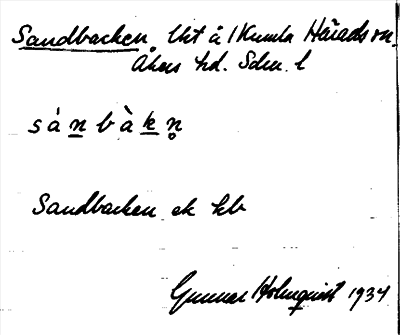 Sandbacken, lht å 1 Kumla Härads sn.
Åkers hd. Sdm. l
sánbàkn̥
Sandbacken ek kb
Gunnar Holmquist 1934